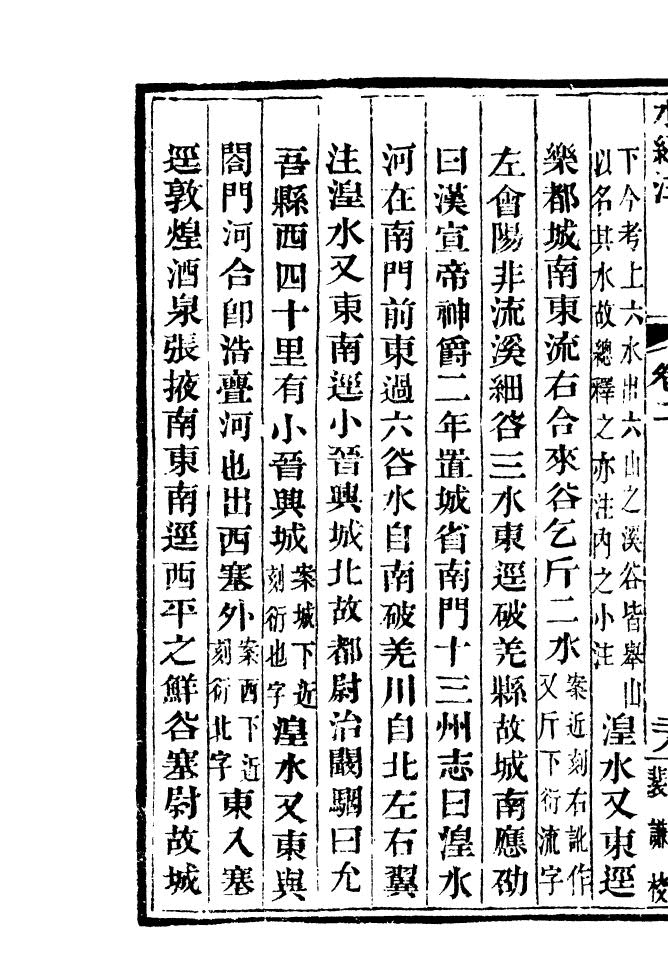 水經注 卷二 裴謙校
下今考上六水出六山之溪谷皆舉山
以名其水故總釋之亦注內之小注
湟水又東逕
樂都城南東流右合來谷乞斤二水案近刻右訛作
又斤下衍流字
左會陽非流溪細谷三水東逕破羌縣故城南應劭
曰漢宣帝神爵二年置城省南門十三州志曰湟水
河在南門前東過六谷水自南破羌川自北左右翼
注湟水又東南逕小晉興城北故都尉治闞駰曰允
吾縣西四十里有小晉興城案城下近
刻衍也字
湟水又東與
閤門河合卽浩亹河也出西塞外案西下近
刻衍北字
東入塞
逕敦煌酒泉張掖南東南逕西平之鮮谷塞尉故城